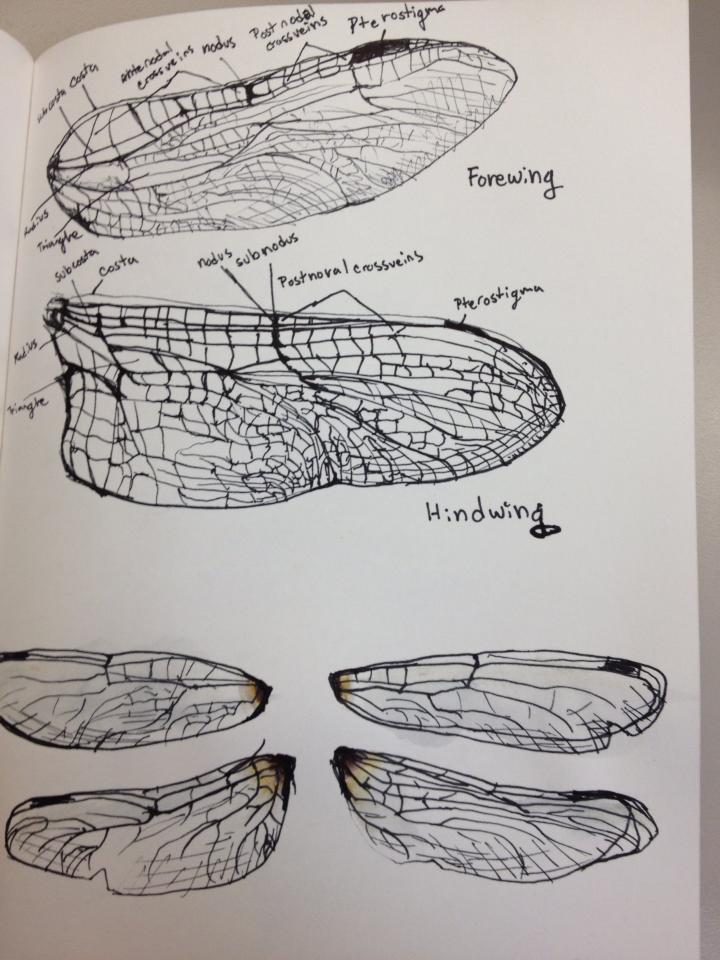 subcosta
Costa
antenodal
crossveins
nodus
Postnodal
crossveins
Pterostigma
Radius
Triangle
Forewing
subcosta
Costa
nodus
subnodus
Postnoval crossveins
Pterostigma
Radius
Triangle
Hindwing